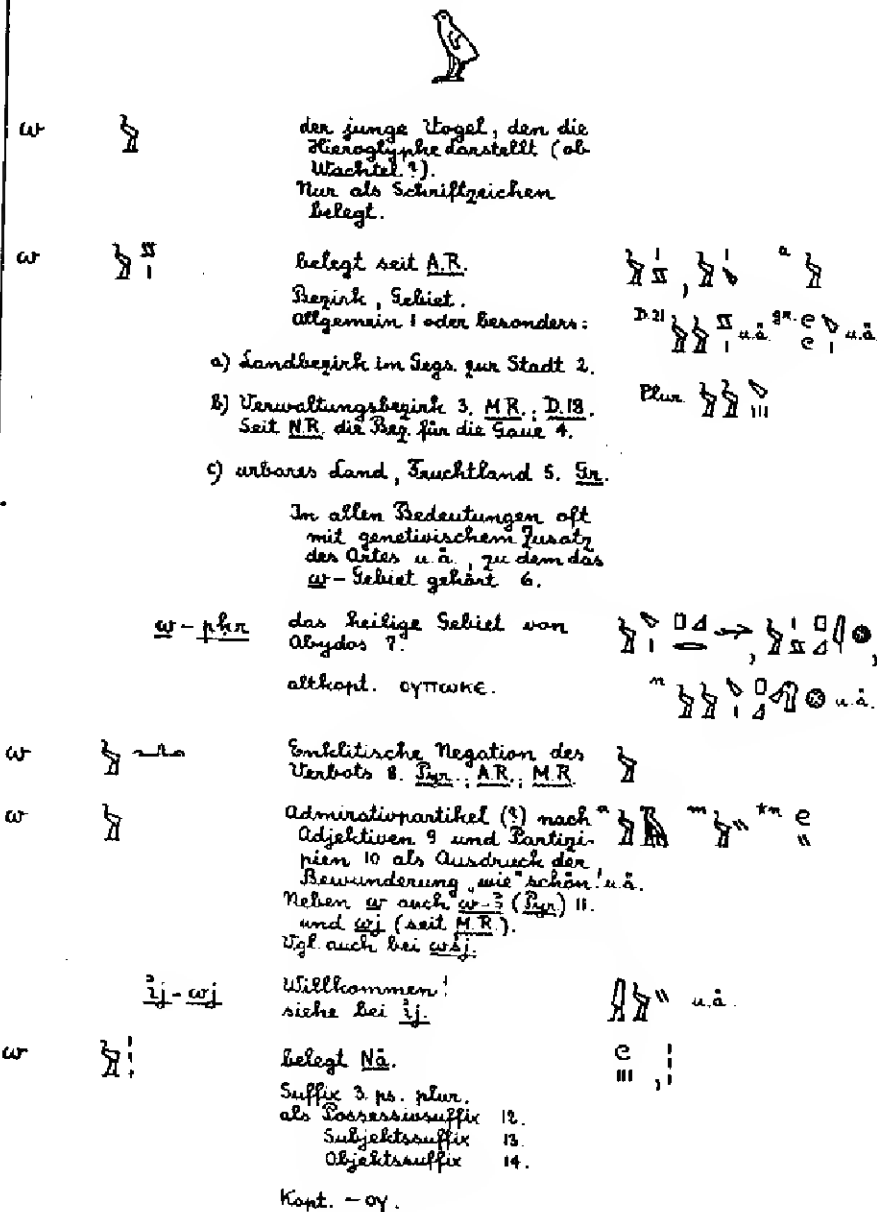 w der junge Vogel, den die
Hieroglyphe darstellt (ob
Wachtel?).
Nur als Schriftzeichen
belegt.
w belegt seit A.R. a
Bezirk, Gebiet.
Allgemein 1 oder besonders: D.21 u.ä. gr. u.ä.
a) Landbezirk im Gegs. zur Stadt 2.
b) Verwaltungsbezirk 3. M.R.; D.18. Plur.
Seit N.R. die Bez. für die Gaue 4.
c) urbares Land, Fruchtland 5. Gr.
In allen Bedeutungen oft
mit genetivischem Zusatz
des Ortes u.ä., zu dem das
w-Gebiet gehört 6.
w-pḳr das heilige Gebiet von
Abydos 7.
altkopt. ογπωκε. n u.ä.
w Enklitische Negation des
Verbots 8. Pyr.; A.R.; M.R.
w Admirativpartikel (?) nach
Adjektiven 9 und Partizi-
pien 10 als Ausdruck der
Bewunderung „wie" schön! u.ä.
Neben w auch w-ꜣ (Pyr.) 11.
und wj (seit M.R.).
Vgl. auch bei
ꜣij-wj Willkommen! u.ä.
siehe bei ꜣij.
w belegt Nä.
Suffix 3. ps. plur.
als Possessivsuffix 12.
Subjektssuffix 13.
Objektssuffix 14.
Kopt. -ογ.